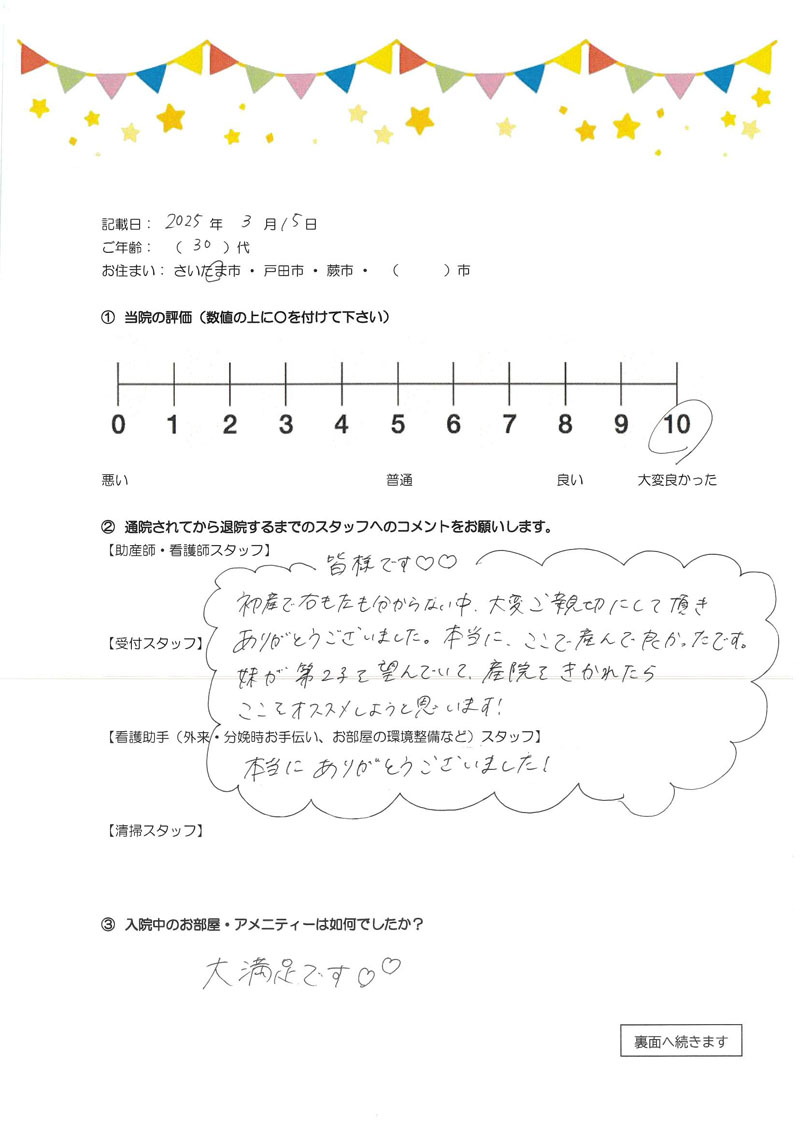 記載日： 2025 年 3 月 15 日
ご年齢： （ 30 ）代
お住まい： さいたま市 ・ 戸田市 ・ 蕨市 ・ （ ）市
① 当院の評価（数値の上に〇を付けて下さい）
0 1 2 3 4 5 6 7 8 9 10
悪い 普通 良い 大変良かった
② 通院されてから退院するまでのスタッフへのコメントをお願いします。
【助産師・看護師スタッフ】
皆様です♡♡
初産で右も左も分からない中、大変ご親切にして頂き
【受付スタッフ】
ありがとうございました。本当に、ここで産んで良かったです。
妹が第2子を望んでいて、産院をきかれたら
ここをオススメしようと思います！
【看護助手（外来・分娩時お手伝い、お部屋の環境整備など）スタッフ】
本当にありがとうございました！
【清掃スタッフ】
③ 入院中のお部屋・アメニティーは如何でしたか？
大満足です♡♡
裏面へ続きます